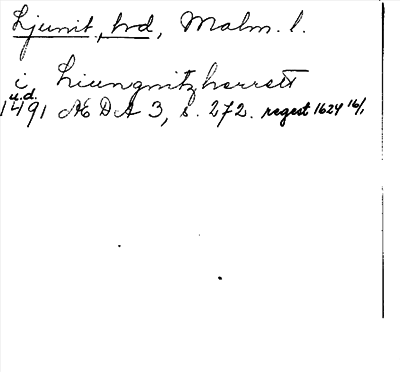 Ljunit, hrd, Malm. l.
i Liungnitzherrett
u.d.
1491 ÆDA 3, s. 272. regest 1624 16/1